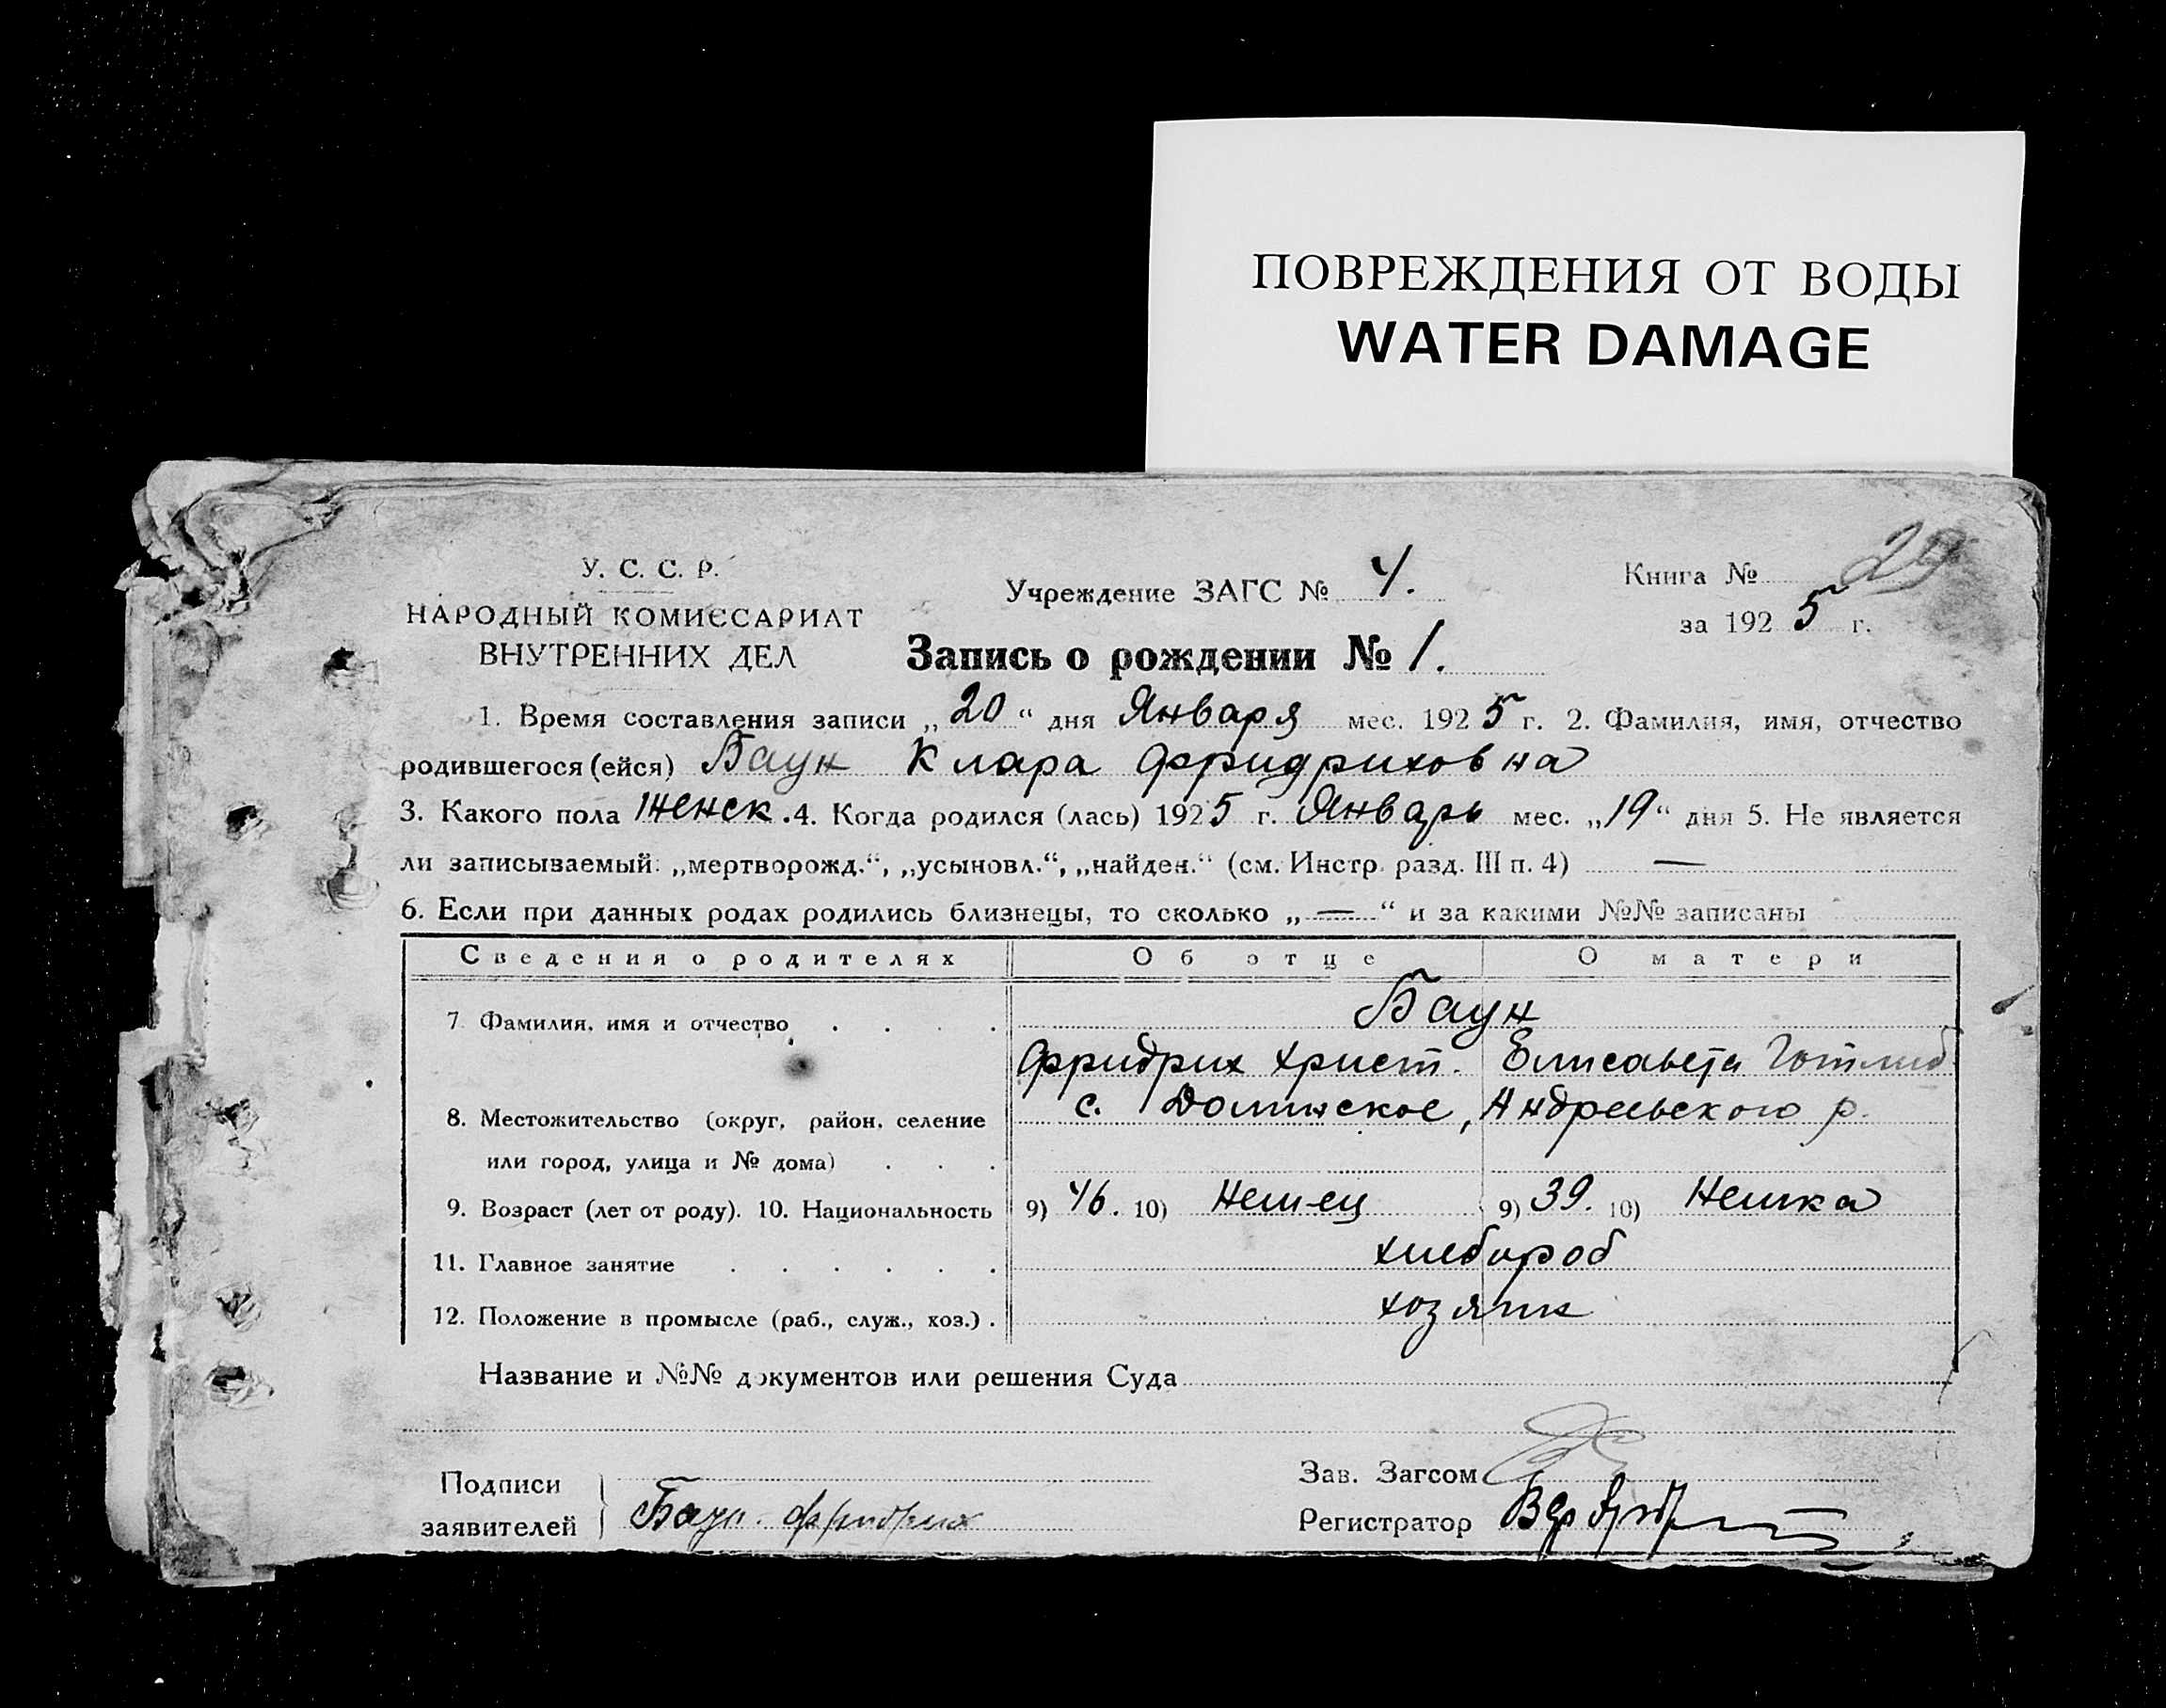 ПОВРЕЖДЕНИЯ ОТ ВОДЫ
WATER DAMAGE
У. С. С. Р.
НАРОДНЫЙ КОМИССАРИАТ
ВНУТРЕННИХ ДЕЛ
Учреждение ЗАГС № 4.
Книга № 29
за 1925 г.
Запись о рождении № 1.
1. Время составления записи „20“ дня Января мес. 1925 г. 2. Фамилия, имя, отчество
родившегося (ейся) Баун Клара Фридриховна
3. Какого пола женск. 4. Когда родился (лась) 1925 г. Январь мес. „19“ дня 5. Не является
ли записываемый: „мертворожд.“, „усыновл.“, „найден.“ (см. Инстр. разд. III п. 4) —
6. Если при данных родах родились близнецы, то сколько „—“ и за какими №№ записаны
Сведения о родителях Об отце О матери
7. Фамилия, имя и отчество Баун
Фридрих Христ. Елисавета Готлиб
8. Местожительство (округ, район, селение с. Долинское, Андреевского р.
или город, улица и № дома)
9. Возраст (лет от роду). 10. Национальность 9) 46. 10) Немец 9) 39. 10) Немка
11. Главное занятие хлебороб
12. Положение в промысле (раб., служ., хоз.) хозяин
Название и №№ документов или решения Суда
Подписи
заявителей Баун Фридрих
Зав. Загсом
Регистратор